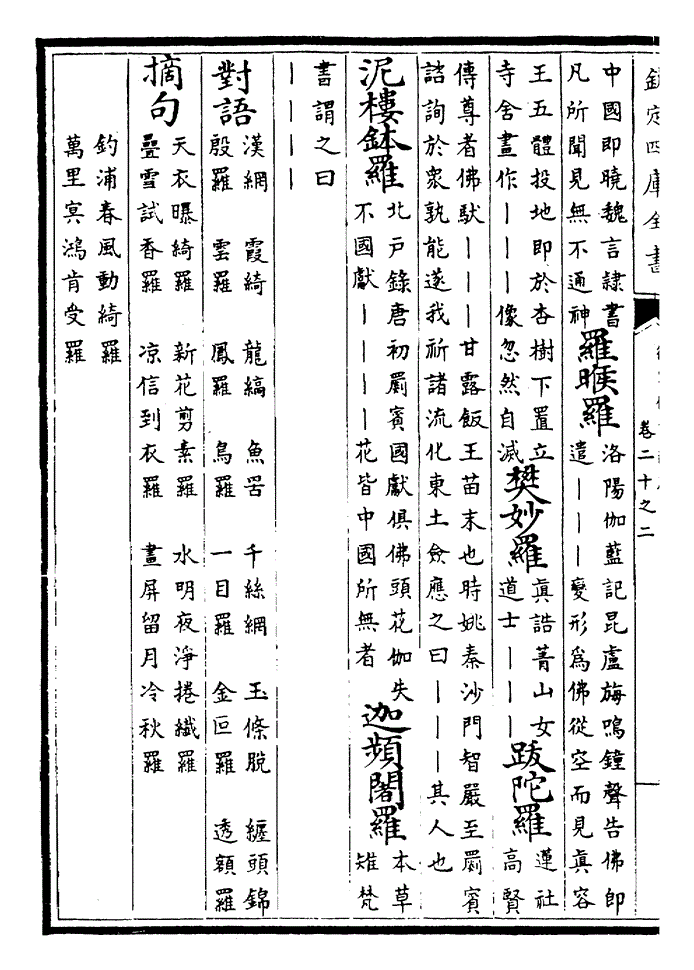 欽定四庫全書
卷二十之二
中國即曉魏言隸書
凡所聞見無不通神
羅睺羅
洛陽伽藍記昆盧旃鳴鐘聲告佛即
遣｜｜｜變形爲佛從空而見真容
王五體投地即於杏樹下置立
寺舍畫作｜｜｜像忽然自滅
樊妙羅
真誥菁山女
道士｜｜｜
跋陀羅
蓮社
高賢
傳尊者佛馱｜｜｜甘露飯王苗末也時姚秦沙門智嚴至罽賓
諮詢於衆孰能遂我祈諸流化東土僉應之曰｜｜｜其人也
泥樓鉢羅
北户錄唐初罽賓國獻俱佛頭花伽失
不國獻｜｜｜｜花皆中國所無者
迦頻闍羅
本草
雉梵
書謂之曰
｜｜｜｜
對語
漢網　霞綺　龍縞　魚罟　千絲網　玉條脫　纏頭錦
殷羅　雲羅　鳳羅　鳥羅　一目羅　金叵羅　透額羅
摘句
天衣曝綺羅　新花剪素羅　水明夜淨捲纖羅
疊雪試香羅　凉信到衣羅　畫屏留月冷秋羅
釣浦春風動綺羅
萬里㝠鴻肯受羅